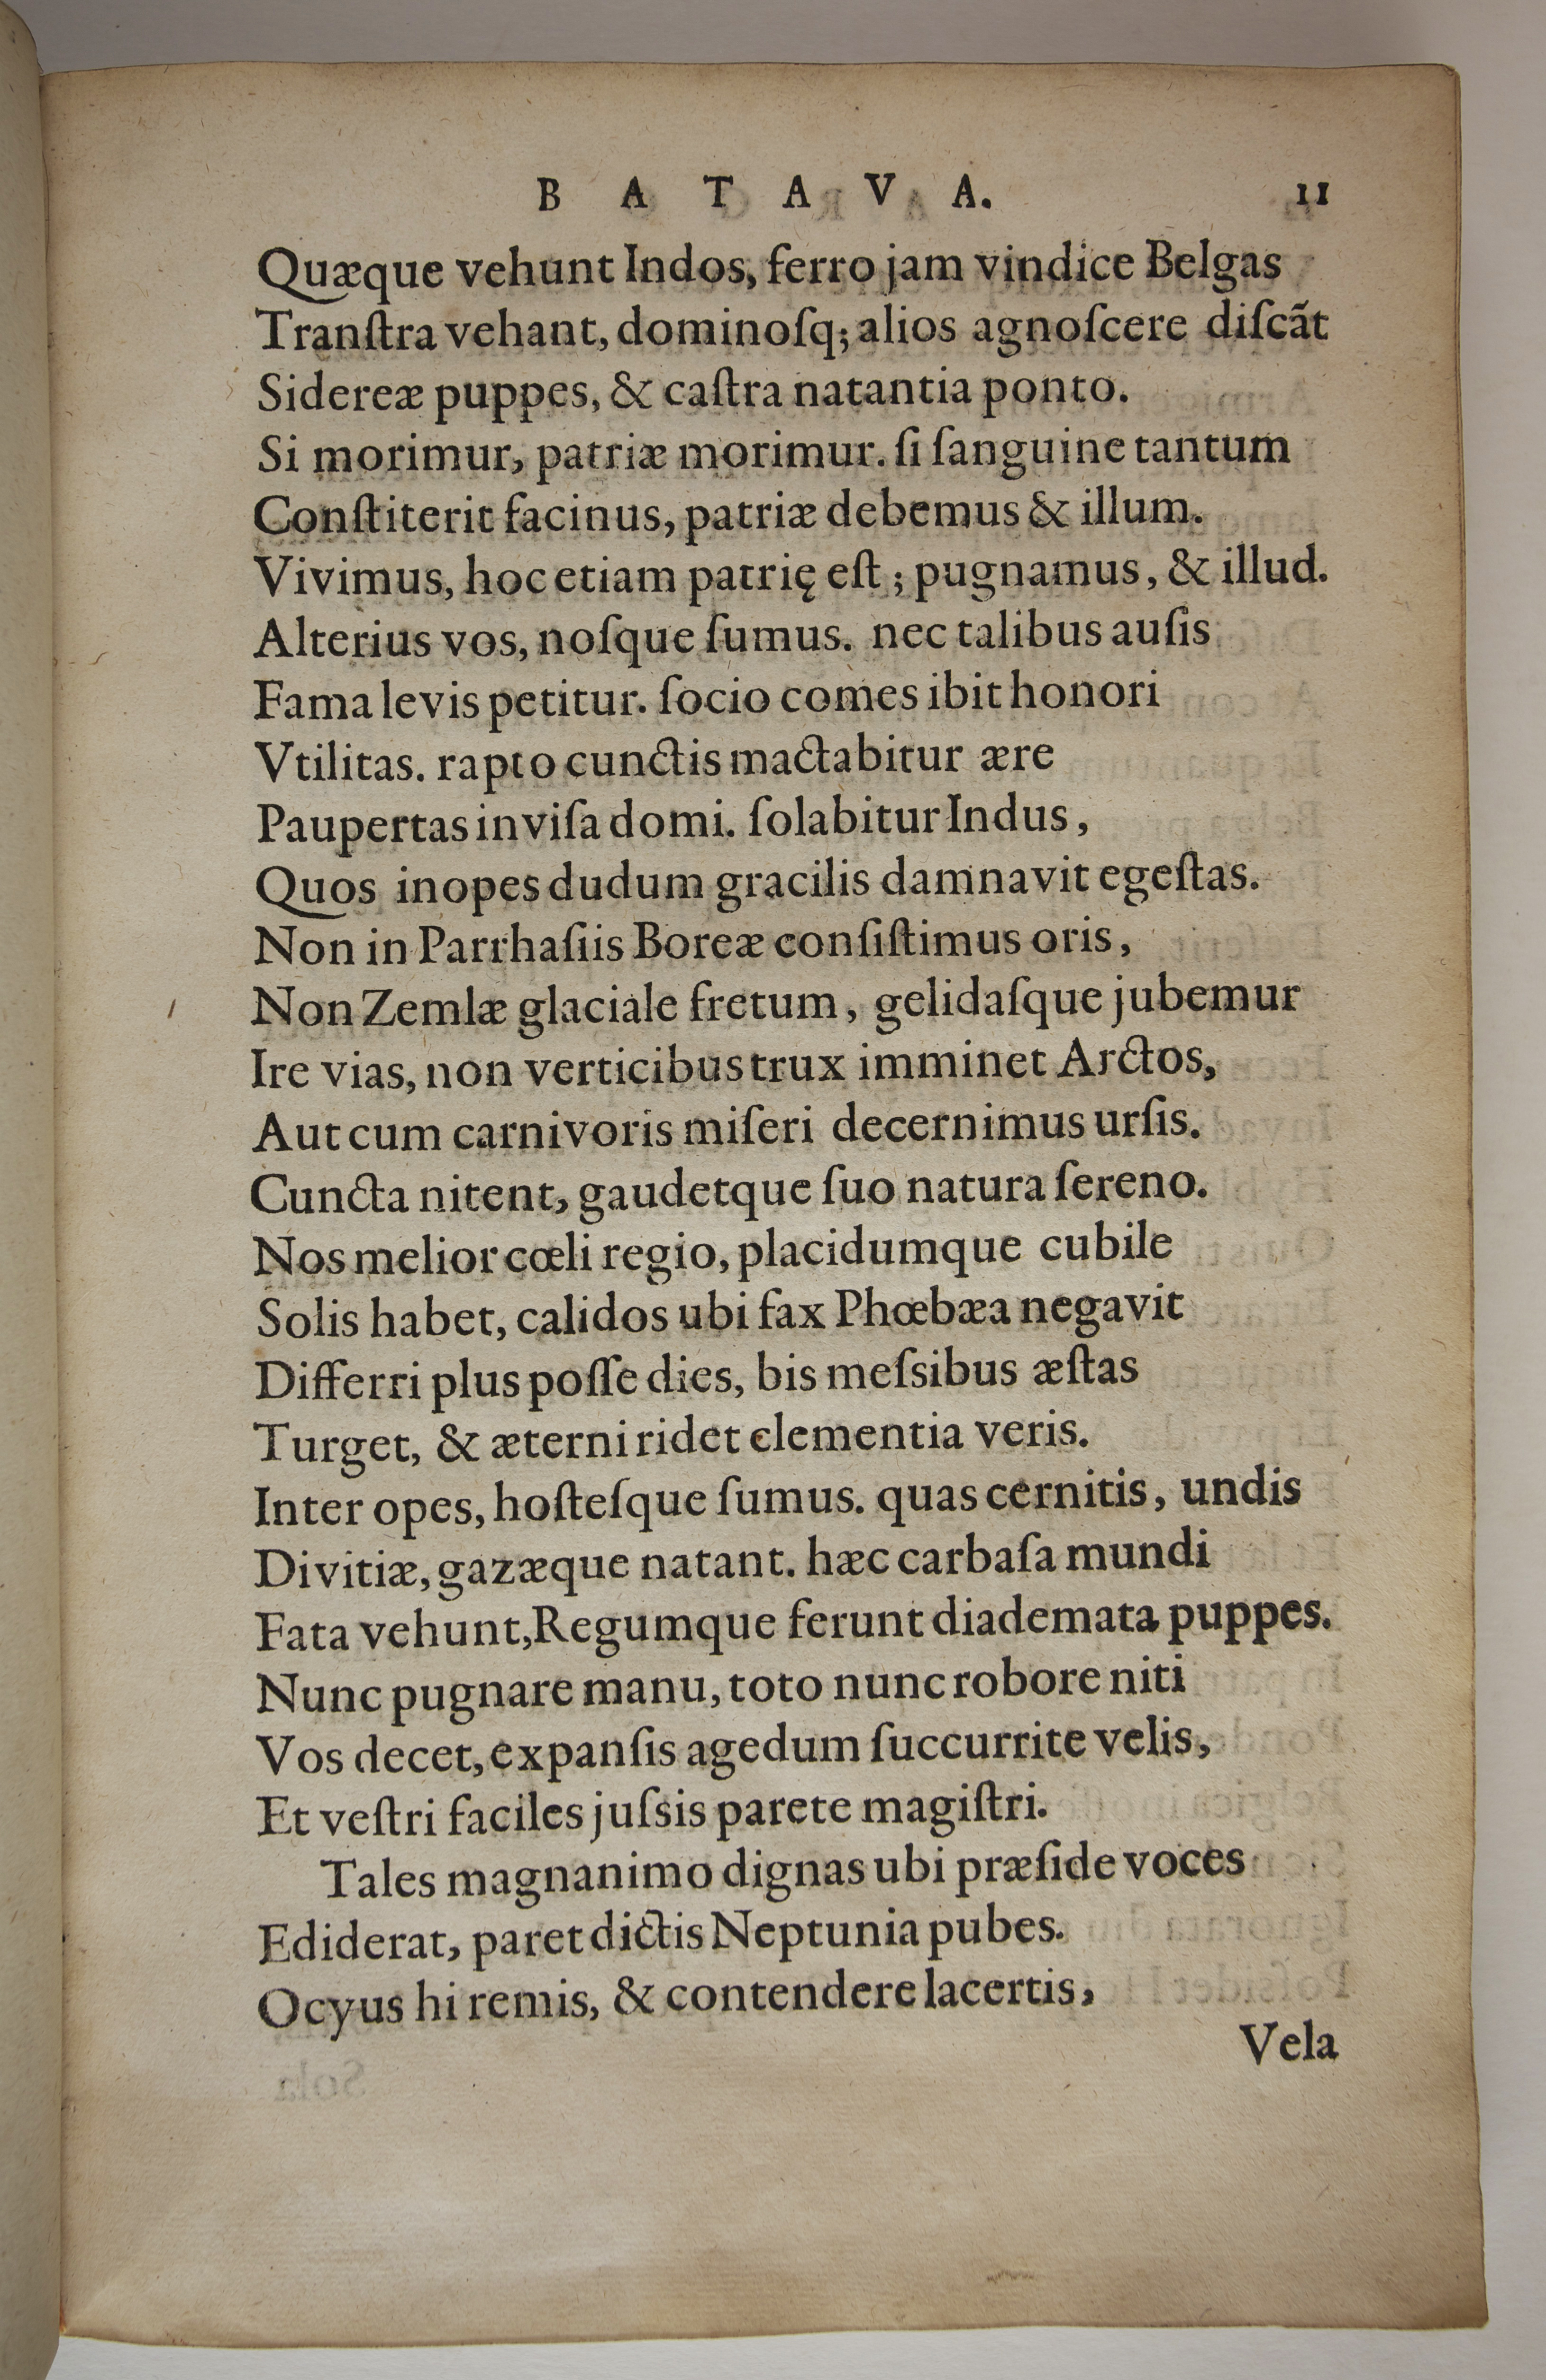 B A T A V A. 11
Quæque vehunt Indos, ferro jam vindice Belgas
Tranſtra vehant, dominoſq; alios agnoſcere diſcãt
Sidereæ puppes, & caſtra natantia ponto.
Si morimur, patriæ morimur. ſi ſanguine tantum
Conſtiterit facinus, patriæ debemus & illum.
Vivimus, hoc etiam patrię eſt; pugnamus, & illud.
Alterius vos, noſque ſumus. nec talibus auſis
Fama levis petitur. ſocio comes ibit honori
Vtilitas. rapto cunctis mactabitur ære
Paupertas inviſa domi. ſolabitur Indus,
Quos inopes dudum gracilis damnavit egeſtas.
Non in Parrhaſiis Boreæ conſiſtimus oris,
Non Zemlæ glaciale fretum, gelidaſque jubemur
Ire vias, non verticibus trux imminet Arctos,
Aut cum carnivoris miſeri decernimus urſis.
Cuncta nitent, gaudetque ſuo natura ſereno.
Nos melior cœli regio, placidumque cubile
Solis habet, calidos ubi fax Phœbæa negavit
Differri plus poſſe dies, bis meſsibus æſtas
Turget, & æterni ridet clementia veris.
Inter opes, hoſteſque ſumus. quas cernitis, undis
Divitiæ, gazæque natant. hæc carbaſa mundi
Fata vehunt, Regumque ferunt diademata puppes.
Nunc pugnare manu, toto nunc robore niti
Vos decet, expanſis agedum ſuccurrite velis,
Et veſtri faciles juſsis parete magiſtri.
Tales magnanimo dignas ubi præſide voces
Ediderat, paret dictis Neptunia pubes.
Ocyus hi remis, & contendere lacertis,
Vela